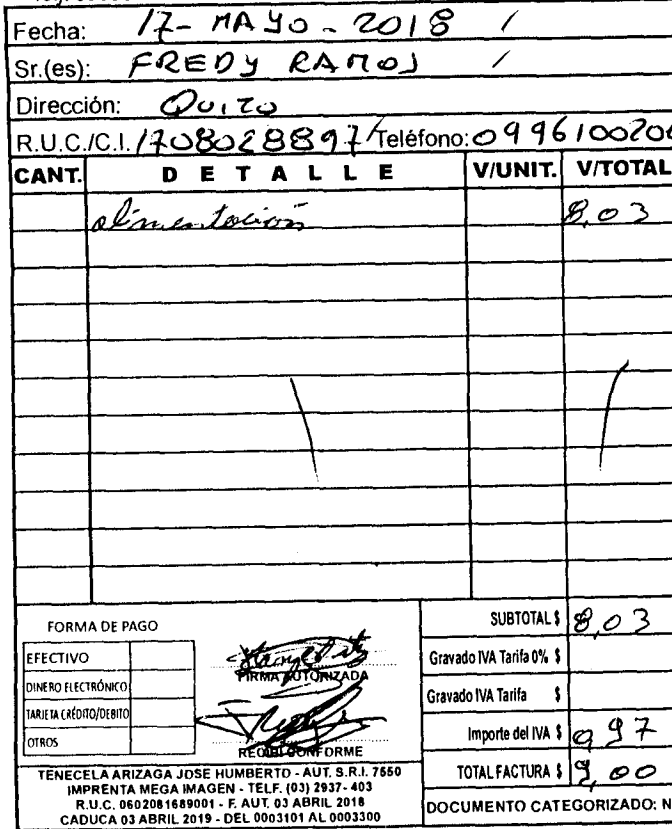 Fecha: 17 - MAYO - 2018 /
Sr.(es): FREDY RAMOS /
Dirección: QUITO
R.U.C./C.I. 1708028897 Teléfono: 0996100206
CANT. DETALLE V/UNIT. V/TOTAL
alimentación 8,03
FORMA DE PAGO
EFECTIVO
DINERO ELECTRÓNICO
TARJETA CRÉDITO/DEBITO
OTROS
FIRMA AUTORIZADA
RECIBI CONFORME
SUBTOTAL $ 8,03
Gravado IVA Tarifa 0% $
Gravado IVA Tarifa $
Importe del IVA $ 0,97
TOTAL FACTURA $ 9,00
TENECELA ARIZAGA JOSE HUMBERTO - AUT. S.R.I. 7550
IMPRENTA MEGA IMAGEN - TELF. (03) 2937- 403
R.U.C. 0602081689001 - F. AUT. 03 ABRIL 2018
CADUCA 03 ABRIL 2019 - DEL 0003101 AL 0003300
DOCUMENTO CATEGORIZADO: N